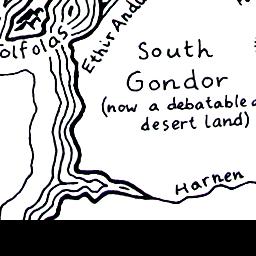 olfolas
Ethir Andu
South
Gondor
(now a debatable
desert land)
Harnen